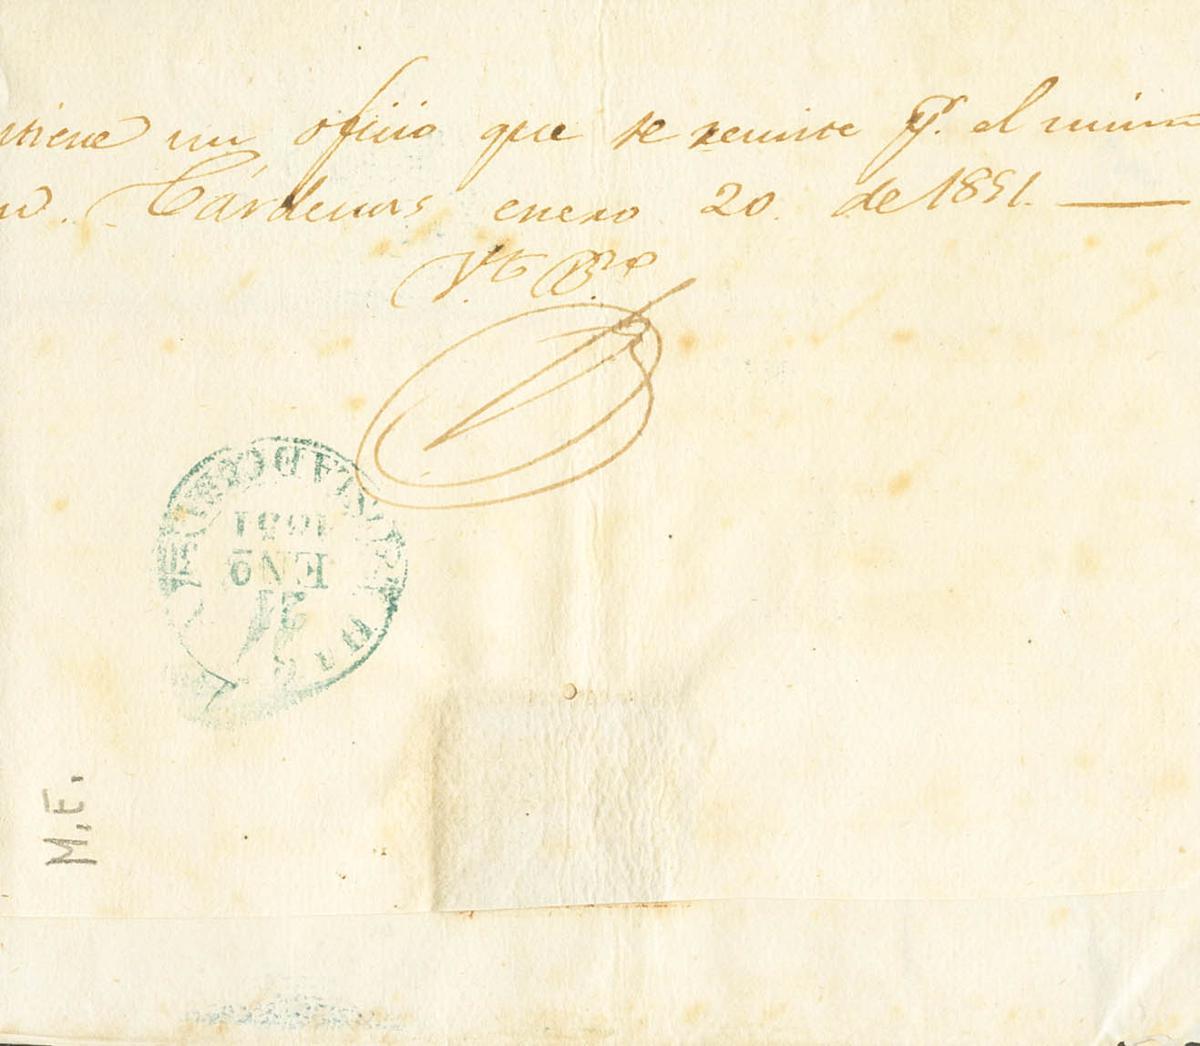 ntiene un oficio que se remite pr. el mism
Cárdenas enero 20. de 1851.
Vte
1851
ENO
21
M.F.